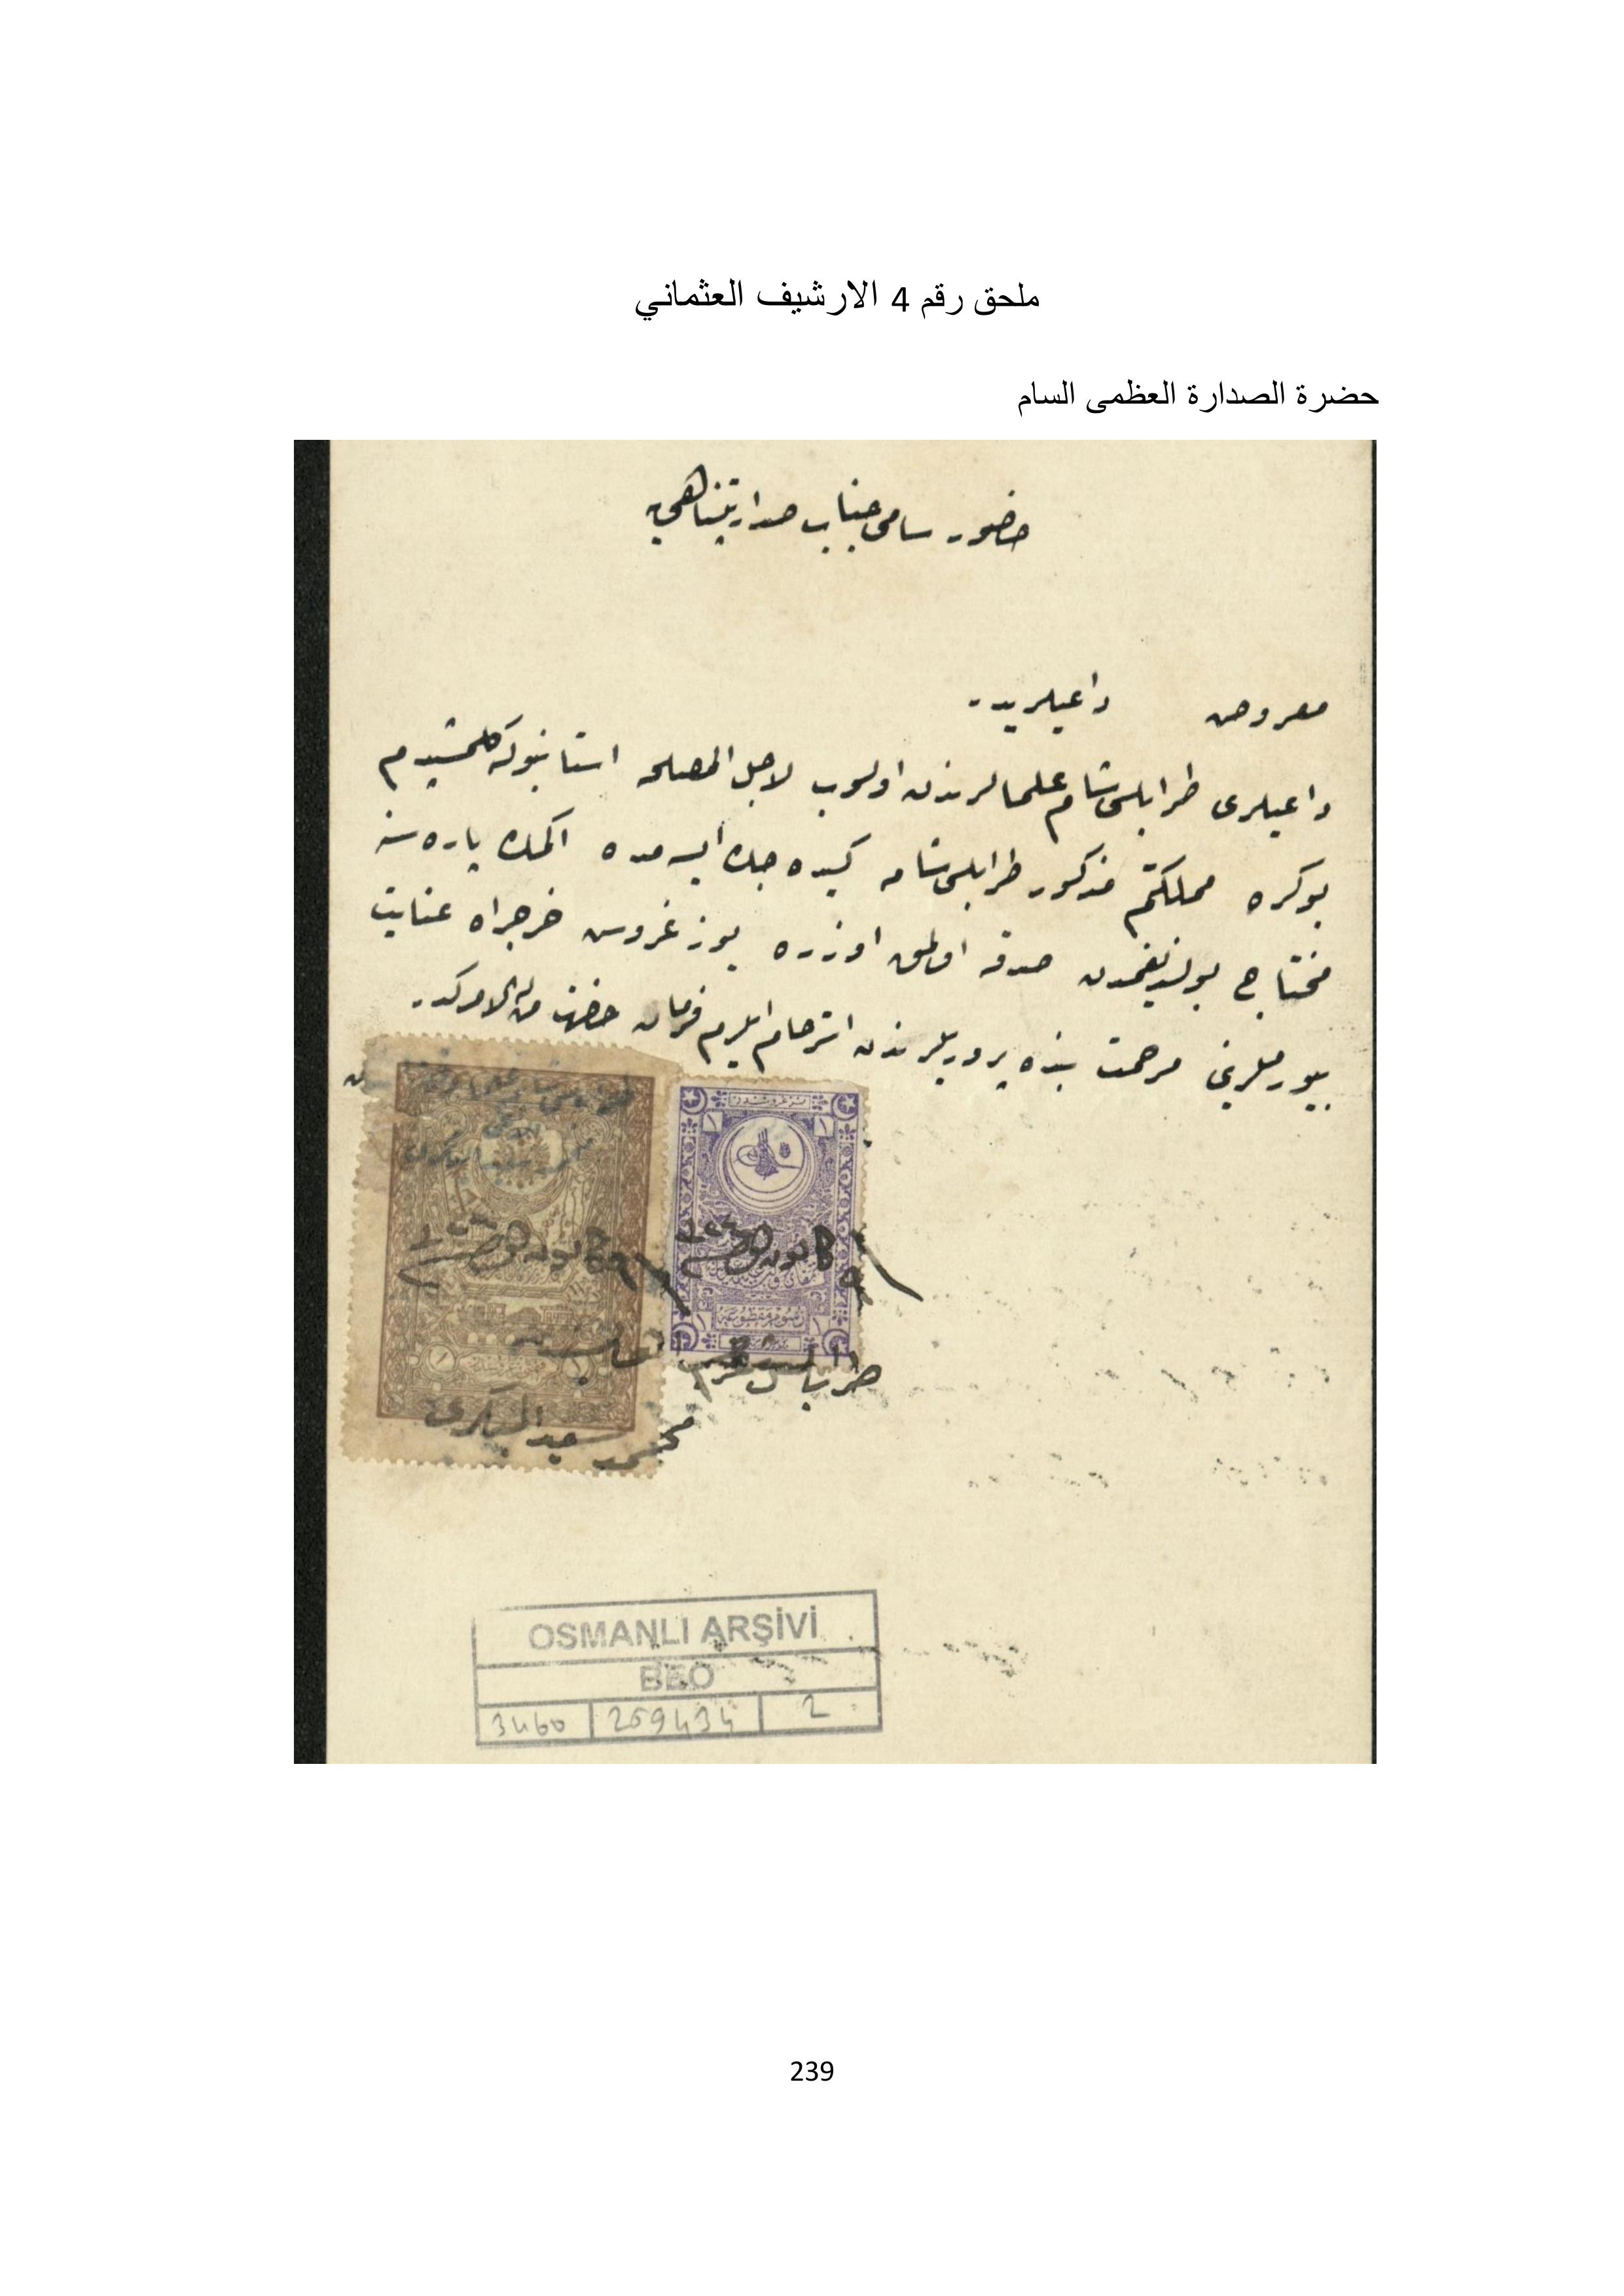 ملحق رقم 4 الارشيف العثماني
حضرة الصدارة العظمى السام
حضور سامى جناب صدارتپناهى
معروض داعيلريدر
داعيلرى طرابلس شام علمالرندن اولوب لاجل المصلحه استانبوله كلمشيدم
بوكره مملكتم مذكور طرابلس شامه كيده جك ايسه مده اكمك پاره سنه
محتاج بولنديغمدن صدقه اولمق اوزره يوز غروش خرجراه عنايت
بيورملرينى مرحمت بنده پرورىلرندن استرحام ايلرم فرمان حضرت من له الامركدر
كانون اول
كانون اول
طرابلس شام
محمد سعيد
OSMANLI ARŞİVİ
BEO
3460 259434 2
239